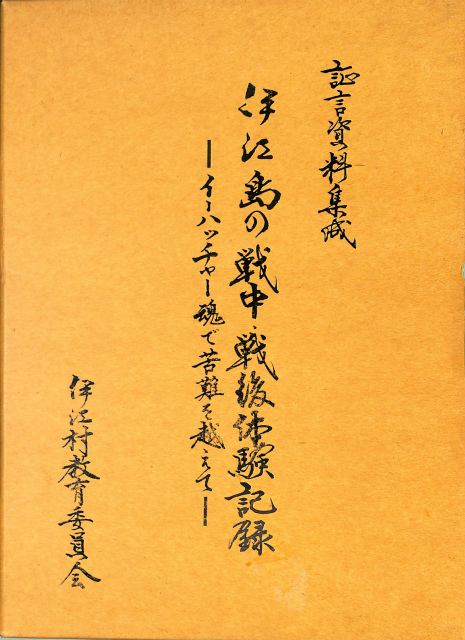 証言資料集成
伊江島の戦中・戦後体験記録
―イーハッチャー魂で苦難を越えて―
伊江村教育委員会